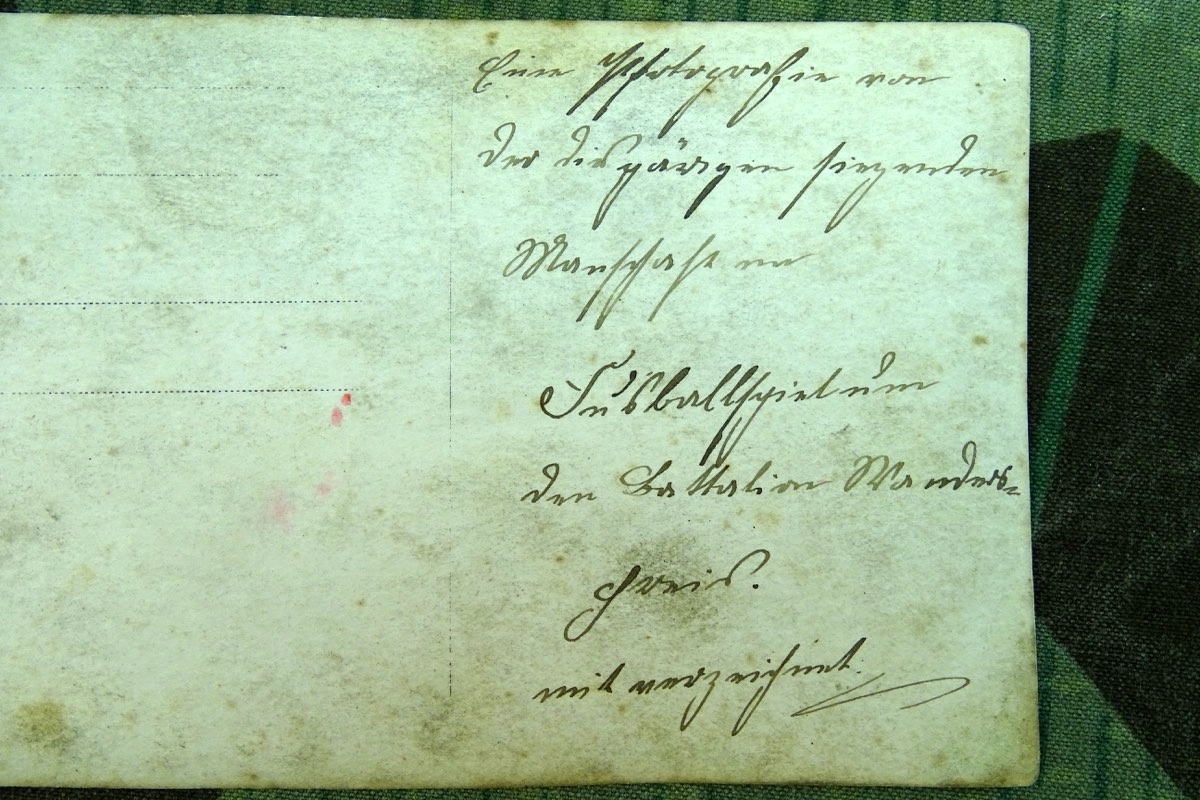 Eine Photografie von
der diesjärigen siegenden
Manschaft im
Fusballspiel um
den Battalion Wanders-
preis.
mit verzeichnet.